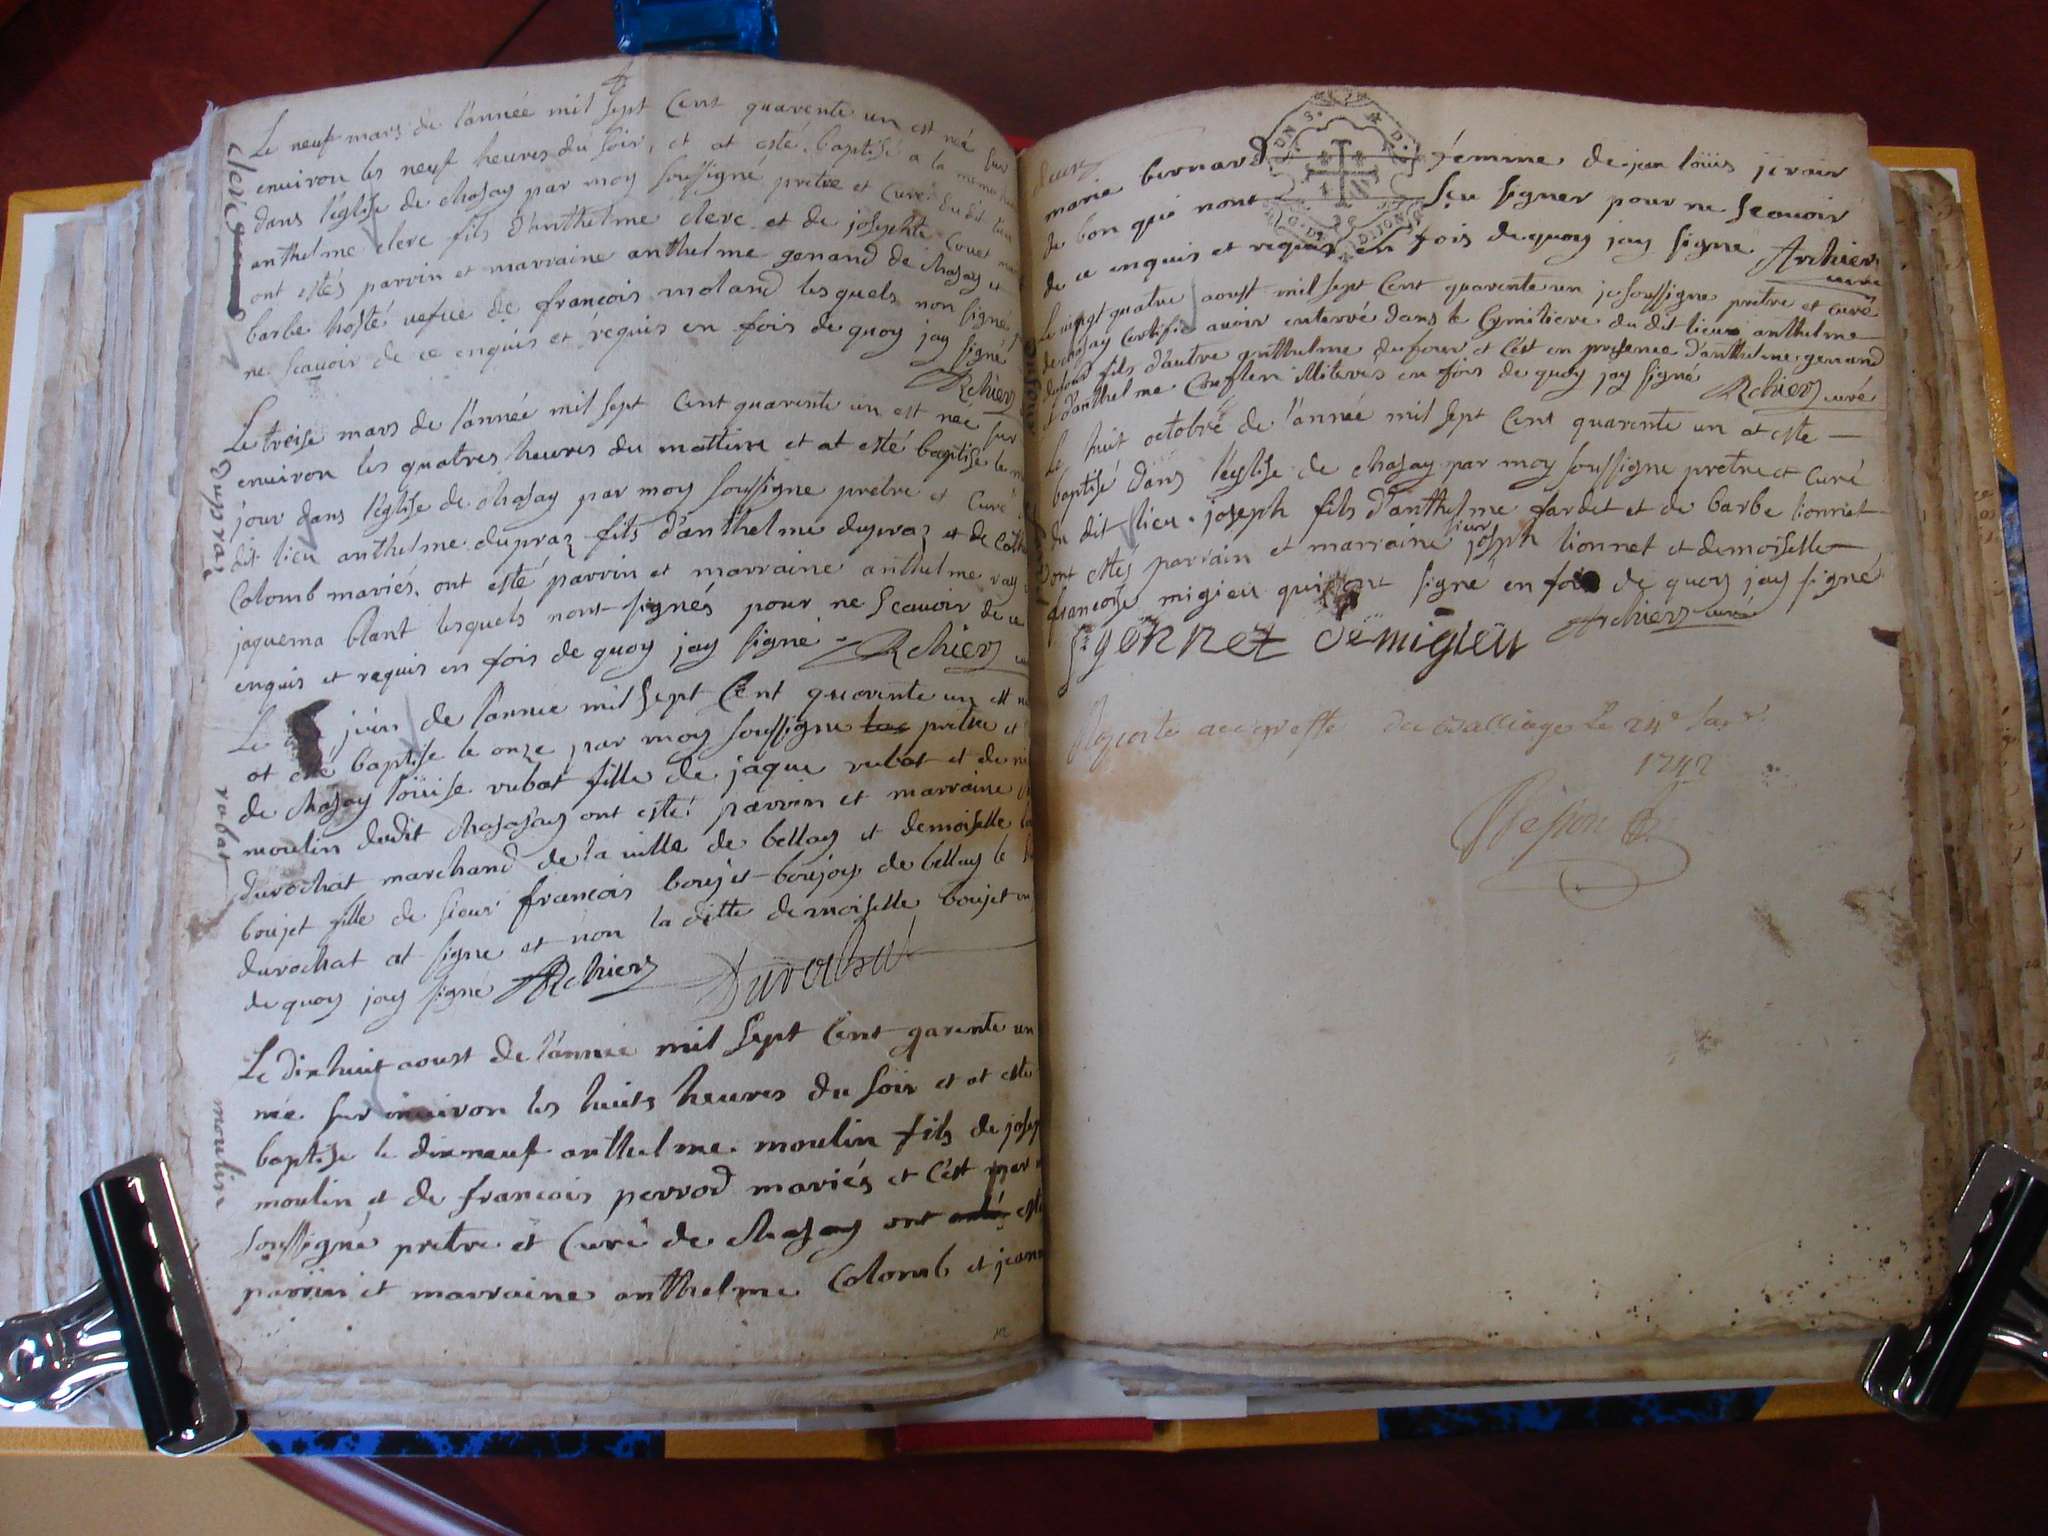 Le neuf mars de l'année mil sept Cent quarente un est née sur
environ les neuf heures du soir, et at esté baptisé a la meme
dans l'église de chasay par moy soussigné pretre et Curé du dit lieu
anthelme clerc fils d'anthelme clerc et de josephte Couet
ont estés parrin et marraine anthelme genand de chasay et
barbe hosté vefue de françois moland lesquels non signé
ne scavoir de ce enquis et requis en fois de quoy jay signé
Archier
clerc
Le treise mars de l'année mil sept Cent quarente un est né sur
environ les quatres heures du mattin et at esté baptisé le
jour dans l'église de chasay par moy soussigne pretre et Curé
dit lieu anthelme dupraz fils d'anthelme dupraz et de
Colomb mariés, ont esté parrin et marraine anthelme ray
jaquema blant lesquels nont signés pour ne scavoir de ce
enquis et requis en fois de quoy jay signé Archier
Dupraz
Le juin de l'année mil sept Cent quarente un est
at été baptise le onze par moy soussigne pretre et
de chasay loüise rubat fille de jaque rubat et de
moulin dudit chasasay ont esté parrin et marraine
durochat marchand de la ville de bellay et demoiselle
boujet fille de sieur françois boujet boujoy de bellay le
durochat at signe et non la ditte demoiselle boujet
de quoy jay signé Archier Durochat
rubat
Le dix huit aoust de l'année mil sept Cent qarente un
née sur environ les huits heures du soir et at esté
baptise le dix neuf anthelme moulin fils de
moulin et de françois perrod mariés et c'est par
soussigné pretre et Curé de chasay ont esté
parrin et marraine anthelme Colomb et
moulin
marie bernard femme de jean loüis jerair
de bon qui nont sçu signer pour ne scavoir
de ce enquis et requis en fois de quoy jay signé Archier
curé
Le vingt quatre aoust mil sept Cent quarente un je soussigne pretre et curé
de chasay Certifie avoir enterré dans le Cymitiere du dit lieu anthelme
dufour fils d'autre anthelme dufour et c'est en presence d'anthelme genand
et d'anthelme en fois de quoy jay signé Archier curé
dufour
Le huit octobre de l'année mil sept Cent quarente un at este
baptisé dans l'église de chasay par moy soussigne pretre et Curé
du dit lieu joseph fils d'anthelme fardet et de barbe lionnet
ont estés parrain et marraine sieur joseph lionnet et demoiselle
françoise migieu qui ont signé en fois de quoy jay signé
Archier curé
demigieu
au greffe du Balliage Le 24e
1742